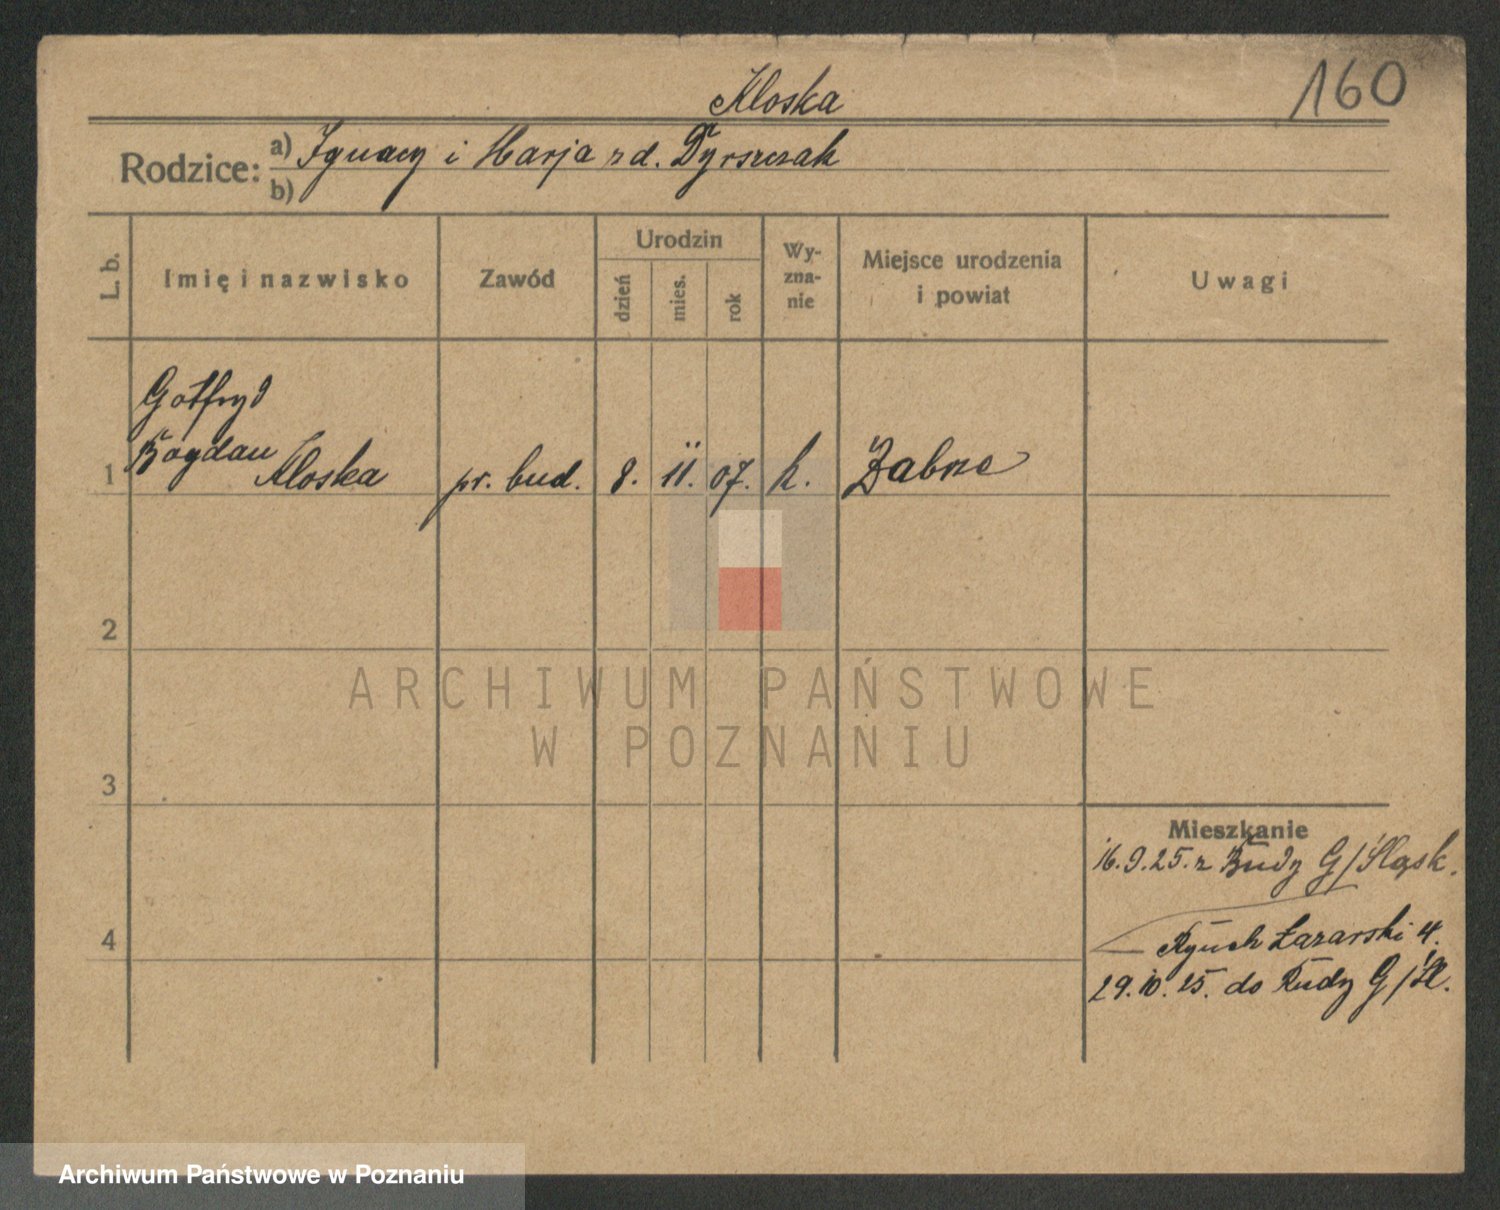 160
Kloska
Rodzice:
a) Ignacy i Marja zd. Dyrszczak
b)
L. b.
Imię i nazwisko
Zawód
Urodzin
dzień
mies.
rok
Wy-
zna-
nie
Miejsce urodzenia
i powiat
Uwagi
Gotfryd
Bogdan
1 Kloska pr. bud. 8. 11. 07. k. Zabrze
2
3
4
ARCHIWUM PAŃSTWOWE
W POZNANIU
Mieszkanie
16.9.25. z Rudy G/Śląsk.
Rynek Łazarski 4.
29.10.25. do Rudy G/Śl.
Archiwum Państwowe w Poznaniu